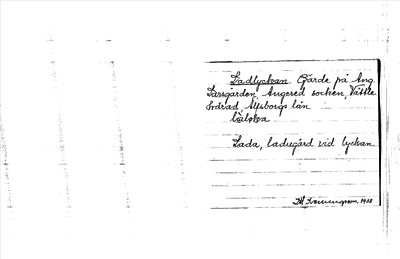 Ladlyckan Gärde på Ang.
Larsgården, Angered socken, Vättle
härad, Älvsborgs län

Lada, ladugård vid lyckan
1938